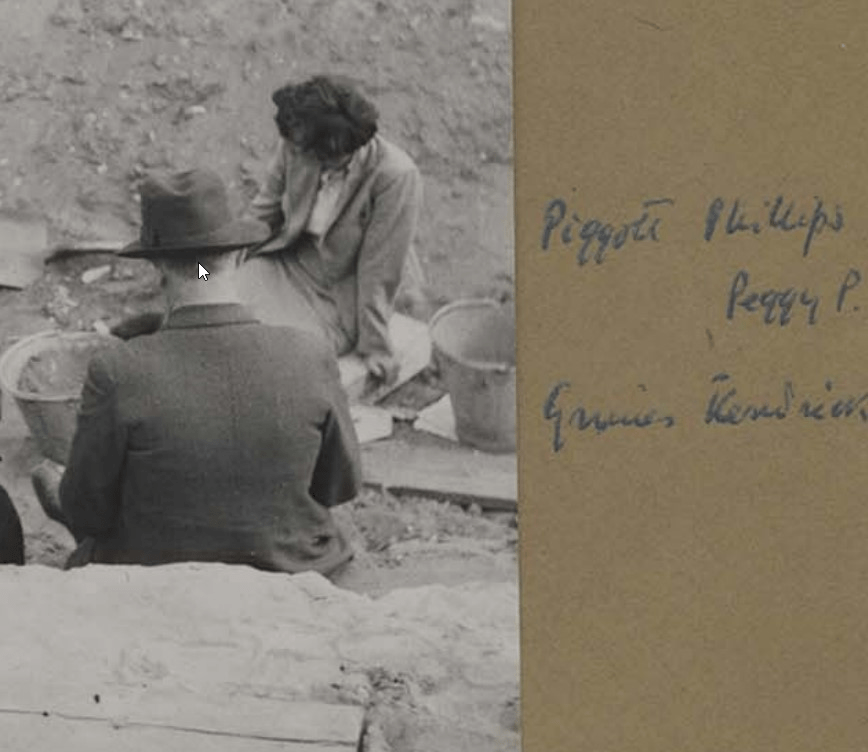 Piggott Phillips
Peggy P.
Grimes Kendrick